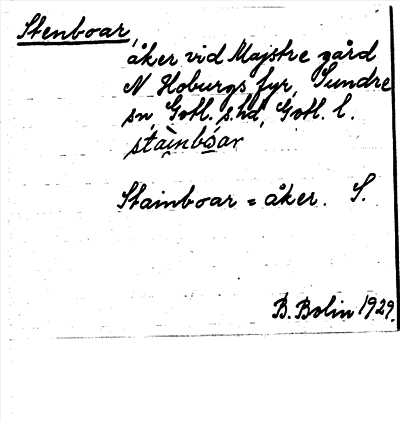 Stenboar,
åker vid Majstre gård
N Hoburgs fyr, Sundre
sn, Gotl. s. hd, Gotl. l.
stàinbǫar
Stainboar = åker. S.
B. Bolin 1929.